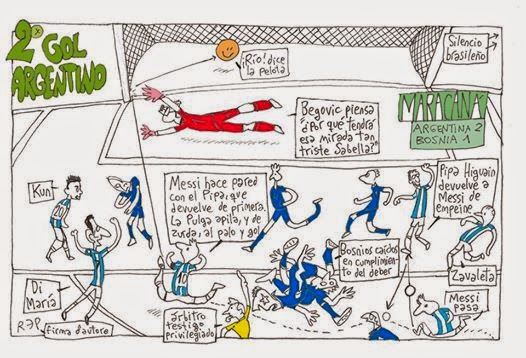 2º GOL
ARGENTINO
¡Río! dice
la pelota
Silencio
brasileño
Begovic piensa
¿Por qué tendrá
esa mirada tan
triste Sabella?"
MARACANÁ
ARGENTINA 2
BOSNIA 1
Kun
Messi hace pared
con el Pipa, que
devuelve de primera.
La Pulga apila, y de
zurda, al palo y gol
Pipa Higuaín
devuelve a
Messi de
empeine
Bosnios caídos
en cumplimien-
to del deber
Zavaleta
Di
María
Messi
pasa
Rep
firma d'autore
árbitro
testigo
privilegiado